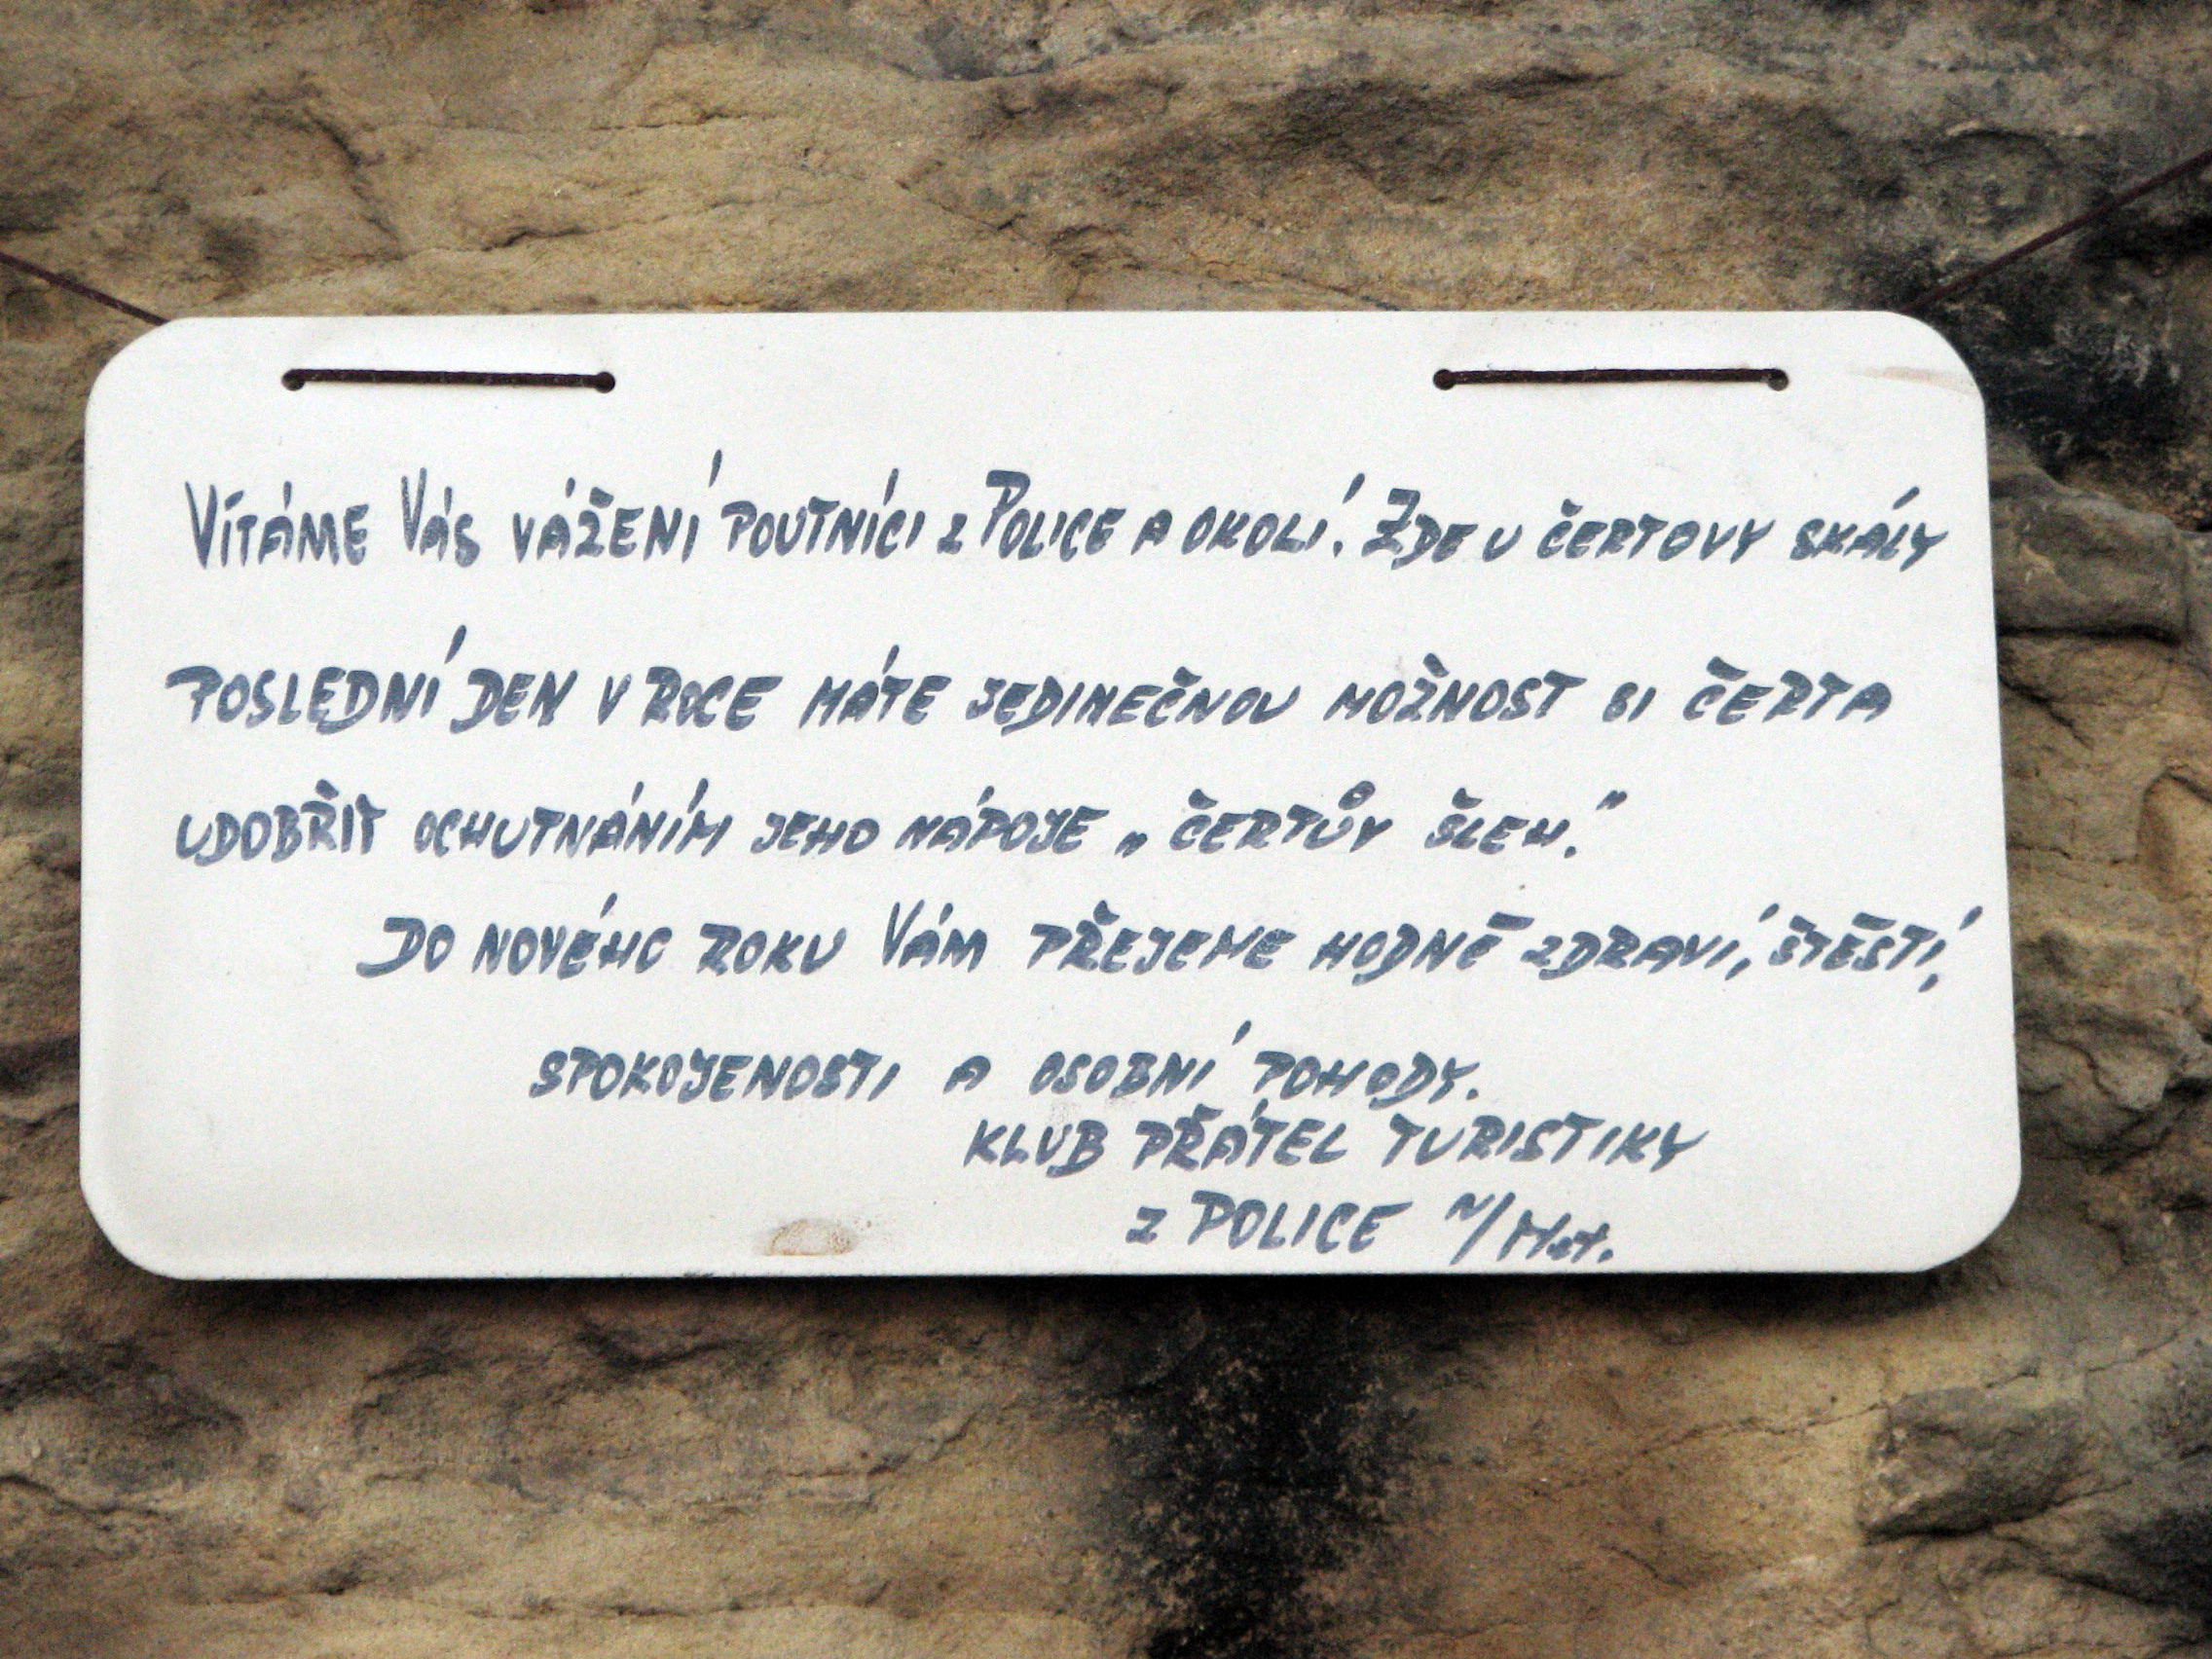 VÍTÁME VÁS VÁŽENÍ POUTNÍCI z POLICE A OKOLÍ. ZDE U ČERTOVY SKÁLY
POSLEDNÍ DEN V ROCE MÁTE JEDINEČNOU MOŽNOST SI ČERTA
UDOBŘIT OCHUTNÁNÍM JEHO NÁPOJE „ČERTŮV ŠLEH.“
DO NOVÉHO ROKU VÁM PŘEJEME HODNĚ ZDRAVÍ, ŠTĚSTÍ,
SPOKOJENOSTI A OSOBNÍ POHODY.
KLUB PŘÁTEL TURISTIKY
z POLICE n/Met.